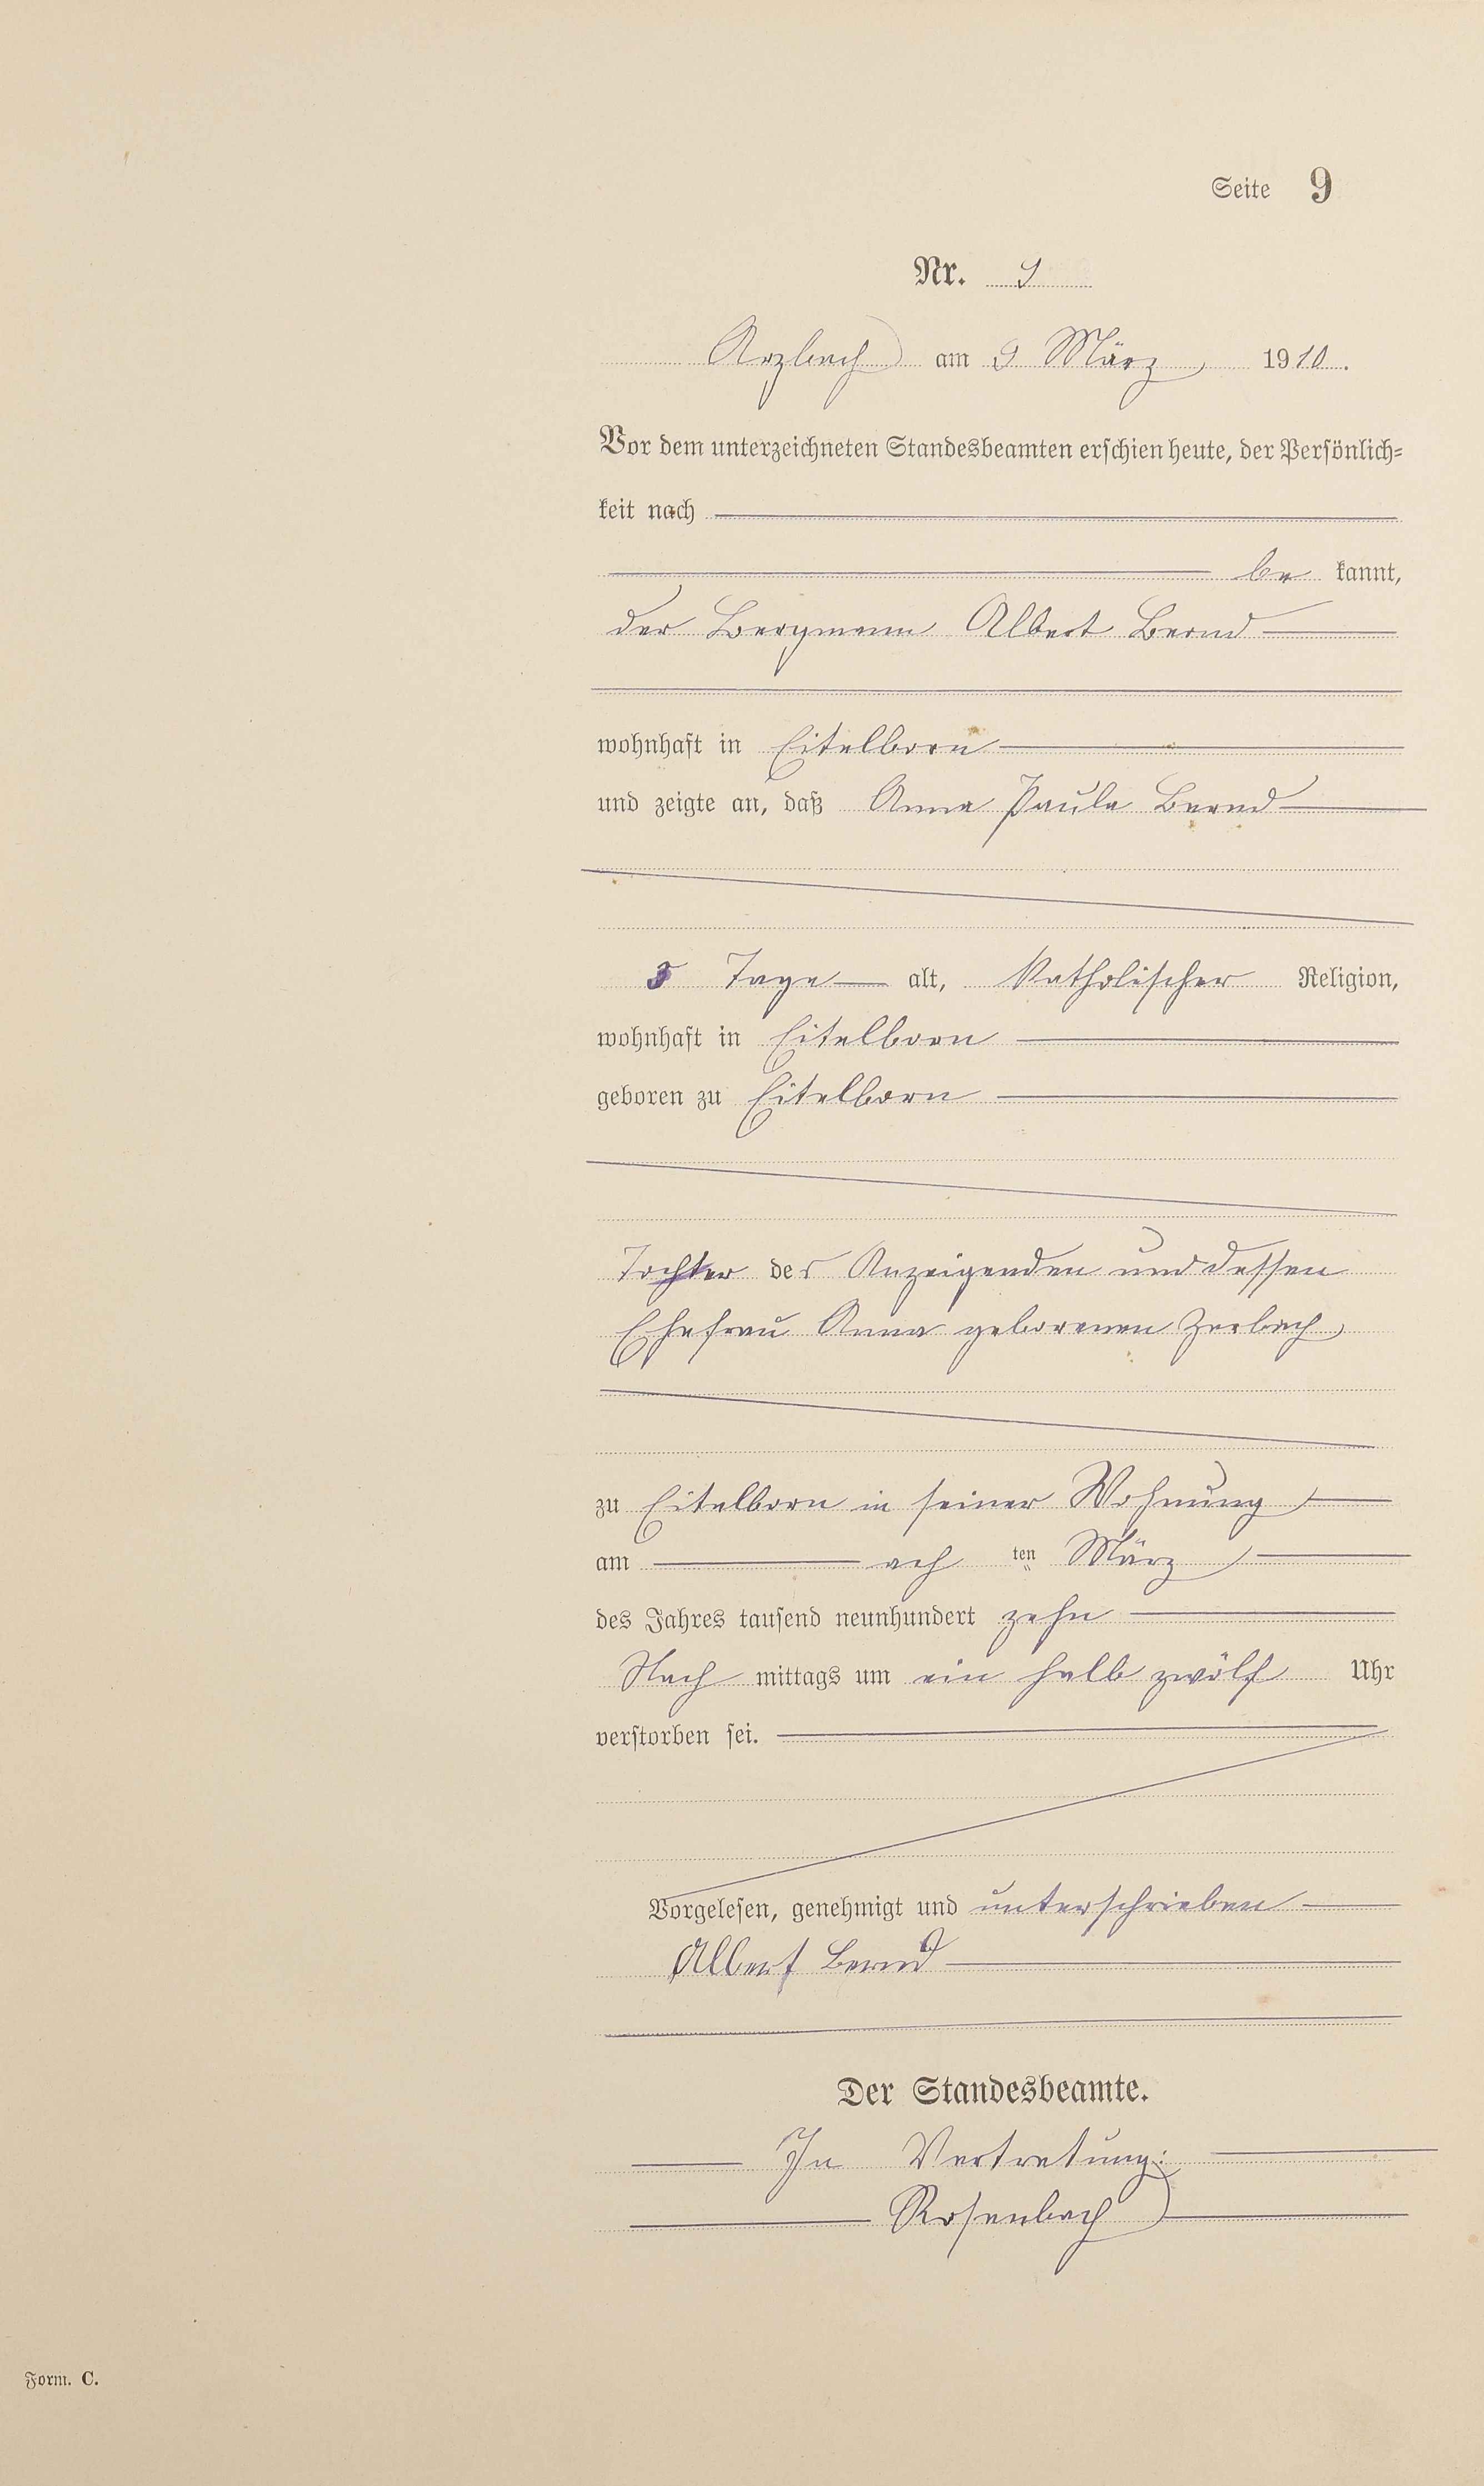 Seite 9
Nr. 9
Arzbach am 9 März 1910.
Vor dem unterzeichneten Standesbeamten erschien heute, der Persönlich-
keit nach
be kannt,
der Bergmann Albert Bernd
wohnhaft in Eitelborn
und zeigte an, daß Anna Paula Bernd
Tage alt, katholischer Religion,
wohnhaft in Eitelborn
geboren zu Eitelborn
Tochter des Anzeigenden und dessen
Ehefrau Anna geborenen
zu Eitelborn in seiner Wohnung
am ach ten März
des Jahres tausend neunhundert zehn
Nach mittags um ein halb zwölf Uhr
verstorben sei.
Vorgelesen, genehmigt und unterschrieben
Albert Bernd
Der Standesbeamte.
In Vertretung:
Rosenbach
Form. C.